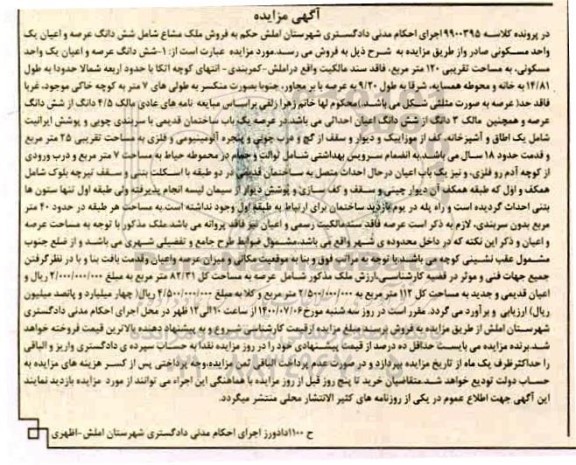 آگهی مزایده
در پرونده کلاسه ۹۹۰۰۳۹۵ اجرای احکام مدنی دادگستری شهرستان املش حکم به فروش ملک مشاع شامل شش دانگ عرصه و اعیان یک
واحد مسکونی صادر و از طریق مزایده به شرح ذیل به فروش می رسد.مورد مزایده عبارت است از: ۱-شش دانگ عرصه و اعیان یک واحد
مسکونی، به مساحت تقریبی ۱۲۰ متر مربع، فاقد سند مالکیت واقع دراملش-کمربندی- انتهای کوچه اتکا با حدود اربعه شمالا حدودا به طول
۱۴/۸۱ به خانه و محوطه همسایه، شرقا به طول ۹/۲۰ به عرصه یا بر مجاور، جنوبا بصورت منکسر به طولی های ۷ متر به کوچه خاکی موجود، غربا
فاقد حد( عرصه به صورت مثلثی شکل می باشد.)محکوم لها خانم زهرا زلقی براساس مبایعه نامه های عادی مالک ۴/۵ دانگ از شش دانگ
عرصه و همچنین مالک ۳ دانگ از شش دانگ اعیان احداثی می باشد.در عرصه یک باب ساختمان قدیمی با سربندی چوبی و پوشش ایرانیت
شامل یک اطاق و آشپزخانه، کف از موزاییک و دیوار و سقف از گچ و درب چوبی و پنجره آلومینیومی و فلزی به مساحت تقریبی ۲۵ متر مربع
و قدمت حدود ۱۸ سال می باشد.به انضمام سرویس بهداشتی شامل توالت و حمام در محموطه حیاط به مساحت ۷ متر مربع و درب ورودی
از کوچه آدم رو فلزی، و نیز یک باب اعیان درحال احداث متصل به ساختمان قدیمی در دو طبقه با اسکلت بتنی و سقف تیرچه بلوک شامل
همکف و اول که طبقه همکف آن دیوار چینی و سقف و کف سازی و پوشش دیوار از سیمان لیسه انجام پذیرفته ولی طبقه اول تنها ستون ها
بتنی احداث گردیده است و راه پله در یوم بازدید ساختمان برای ارتباط به طبقه اول وجود نداشته است.به مساحت هر طبقه در حدود ۴۰ متر
مربع بدون سربندی، لازم به ذکر است عرصه فاقد سند مالکیت رسمی و اعیان نیز فاقد پروانه می باشد.ملک مذکور با توجه به مساحت عرصه
و اعیان و ذکر این نکته که در داخل محدوده ی شهر واقع می باشد.مشمول ضوابط طرح جامع و تفضیلی شهری می باشد و از ضلع جنوب
مشمول عقب نشینی کوچه می باشد.با توجه به مراتب فوق و بنا به موقعیت مکانی و میزان عرصه واعیان وقدمت بافت بنا و با در نظرگرفتن
جمیع جهات فنی و موثر در قضیه کارشناسی،ارزش ملک مذکور شامل عرصه به مساحت کل ۸۲/۳۱ متر مربع به مبلغ ۲/۰۰۰/۰۰۰/۰۰۰ ریال و
اعیان قدیمی و جدید به مساحت کل ۱۱۲ متر مربع به ۲/۵۰۰/۰۰۰/۰۰۰ متر مربع و کلا به مبلغ ۴/۵۰۰/۰۰۰/۰۰۰ ریال( چهار میلیارد و پانصد میلیون
ریال) ارزیابی و برآورد می گردد. مقرر است در روز سه شنبه مورخ ۱۴۰۰/۰۷/۰۶ از ساعت ۱۰ الی ۱۲ ظهر در محل اجرای احکام مدنی دادگستری
شهرستان املش از طریق مزایده به فروش برسد.مبلغ مزایده از قیمت کارشناسی شروع و به پیشنهاد دهنده بالاترین قیمت فروخته خواهد
شد.برنده مزایده می بایست حداقل ده درصد از قیمت پیشنهادی خود را در روز مزایده نقدا به حساب سپرده ی دادگستری واریز و الباقی
را حداکثر ظرف یک ماه از تاریخ مزایده بپردازد و در صورت عدم پرداخت الباقی ثمن مزایده،وجه پرداختی پس از کسر هزینه های مزایده به
حساب دولت تودیع خواهد شد.متقاضیان خرید تا پنج روز قبل از روز مزایده با هماهنگی این اجراء می توانند از مورد مزایده بازدید نمایند
این آگهی جهت اطلاع عموم در یکی از روزنامه های کثیر الانتشار محلی منتشر میگردد.
ح ۱۱۰۰ دادورز اجرای احکام مدنی دادگستری شهرستان املش-اظهری